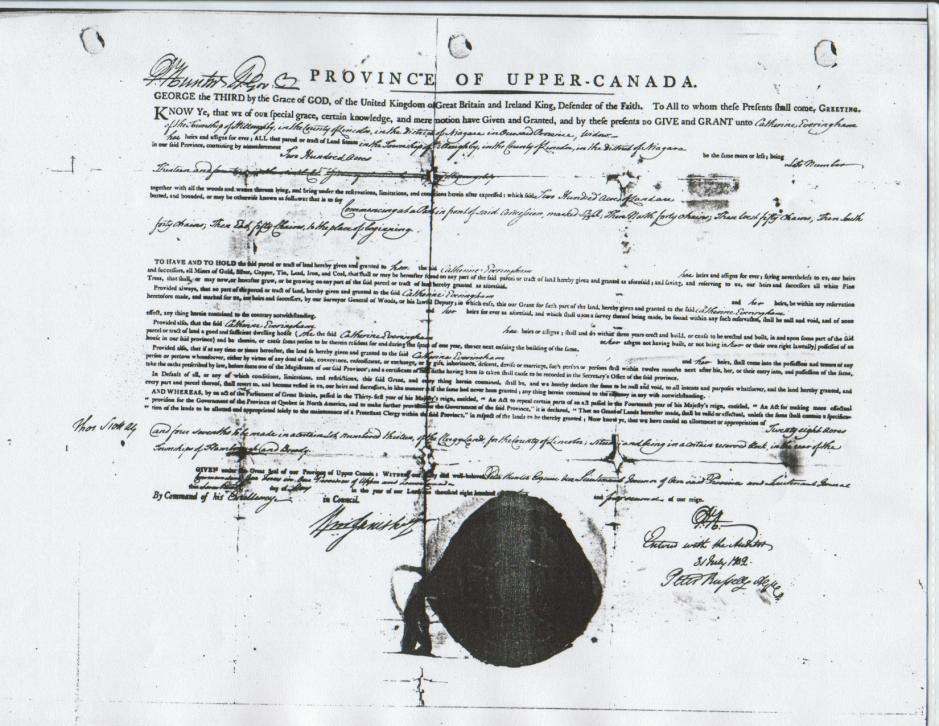 P Hunter Lt Gov PROVINCE OF UPPER-CANADA.
GEORGE the THIRD by the Grace of GOD, of the United Kingdom of Great Britain and Ireland King, Defender of the Faith. To All to whom theſe Preſents ſhall come, GREETING.
KNOW Ye, that we of our ſpecial grace, certain knowledge, and mere motion have Given and Granted, and by theſe preſents DO GIVE and GRANT unto Catherine Everingham
of the Township of Willoughby, in the County of Lincoln, in the District of Niagara in our said Province, Widow
her heirs and aſſigns for ever; ALL that parcel or tract of Land ſituate in the Township of Willoughby, in the County of Lincoln, in the District of Niagara
in our ſaid Province, containing by admeaſurement Two Hundred Acres be the ſame more or leſs; being Lots Number
Thirteen and
together with all the woods and waters thereon lying, and being under the reſervations, limitations, and conditions herein after expreſſed; which ſaid Two Hundred Acres of Land are
butted, and bounded, or may be otherwiſe known as follows; that is to ſay Commencing at a Post in front of said Concession, marked ; Then North forty chains; Then West fifty Chains; Then South
forty chains; Then East fifty Chains, to the place of beginning.
TO HAVE AND TO HOLD the ſaid parcel or tract of land hereby given and granted to her the ſaid Catherine Everingham her heirs and aſſigns for ever; ſaving nevertheleſs to us, our heirs
and ſucceſſors, all Mines of Gold, Silver, Copper, Tin, Lead, Iron, and Coal, that ſhall or may be hereafter found on any part of the ſaid parcel or tract of land hereby given and granted as aforeſaid; and ſaving, and reſerving to us, our heirs and ſucceſſors all white Pine
Trees, that ſhall, or may now, or hereafter grow, or be growing on any part of the ſaid parcel or tract of land hereby granted as aforeſaid.
Provided always, that no part of the parcel or tract of land hereby given and granted to the ſaid Catherine Everingham and her heirs, be within any reſervation
heretofore made, and marked for us, our heirs and ſucceſſors, by our Surveyor General of Woods, or his lawful Deputy; in which caſe, this our Grant for ſuch part of the land, hereby given and granted to the ſaid Catherine Everingham
and her heirs for ever as aforeſaid, and which ſhall upon a ſurvey thereof being made, be found within any ſuch reſervation, ſhall be null and void, and of none
effect, any thing herein contained to the contrary notwithſtanding.
Provided alſo, that the ſaid Catherine Everingham her heirs or aſſigns; ſhall and do within three years erect and build, or cauſe to be erected and built, in and upon ſome part of the ſaid
parcel or tract of land a good and ſufficient dwelling houſe (she the ſaid Catherine Everingham or her aſſigns not having built, or not being in her or their own right lawfully poſſeſſed of an
houſe in our ſaid province) and be therein, or cauſe ſome perſon to be therein reſident for and during the ſpace of one year, thence next enſuing the building of the ſame.
Provided alſo, that if at any time or times hereafter, the land ſo hereby given and granted to the ſaid Catherine Everingham and her heirs, ſhall come into the poſſeſſion and tenure of any
perſon or perſons whomſoever, either by virtue of any deed of ſale, conveyance, enfeoffment, or exchange, or by gift, inheritance, deſcent, deviſe or marriage, ſuch perſon or perſons ſhall within twelve months next after his, her, or their entry into, and poſſeſſion of the ſame,
take the oaths preſcribed by law, before ſome one of the Magiſtrates of our ſaid Province; and a certificate of ſuch oaths having been ſo taken ſhall cauſe to be recorded in the Secretary's Office of the ſaid province.
In Default of all, or any of which conditions, limitations, and reſtrictions, this ſaid Grant, and every thing herein contained, ſhall be, and we hereby declare the ſame to be null and void, to all intents and purpoſes whatſoever, and the land hereby granted, and
every part and parcel thereof, ſhall revert to, and become veſted in us, our heirs and ſucceſſors, in like manner as if the ſame had never been granted; any thing herein contained to the contrary in any wiſe notwithſtanding.
AND WHEREAS, by an act of the Parliament of Great Britain, paſſed in the Thirty-firſt year of his Majeſty's reign, entitled, "An Act to repeal certain parts of an act paſſed in the Fourteenth year of his Majeſty's reign, entitled, "An Act for making more effectual
"proviſion for the Government of the Province of Quebec in North America, and to make further proviſion for the Government of the ſaid province," it is declared, "That no Grant of Lands hereafter made, ſhall be valid or effectual, unleſs the ſame ſhall contain a ſpecifica-
"tion of the lands to be allotted and appropriated ſolely to the maintenance of a Proteſtant Clergy within the ſaid Province," in reſpect of the lands to be thereby granted; Now know ye, that we have cauſed an allotment or appropriation of Twenty eight Acres
Thos
and four sevenths to be made in a certain Lot numbered thirteen, of the Clergy Lands, for the County of Lincoln; situate and being in a certain reserved block, in the rear of the
Townships of Flamborough and Beverly.
GIVEN under the Great Seal of our Province of Upper Canada: WITNESS our truſty and well-beloved Peter Hunter Esquire our Lieutenant Governor of our said Province and Lieutenant General
Commanding our Forces in our Provinces of Upper and Lower Canada
this day of May in the year of our Lord one thouſand eight hundred and and of our reign.
By Command of his Excellency in Council.
P.H.
Entered with the Auditor
31 July 1802.
Peter Russell